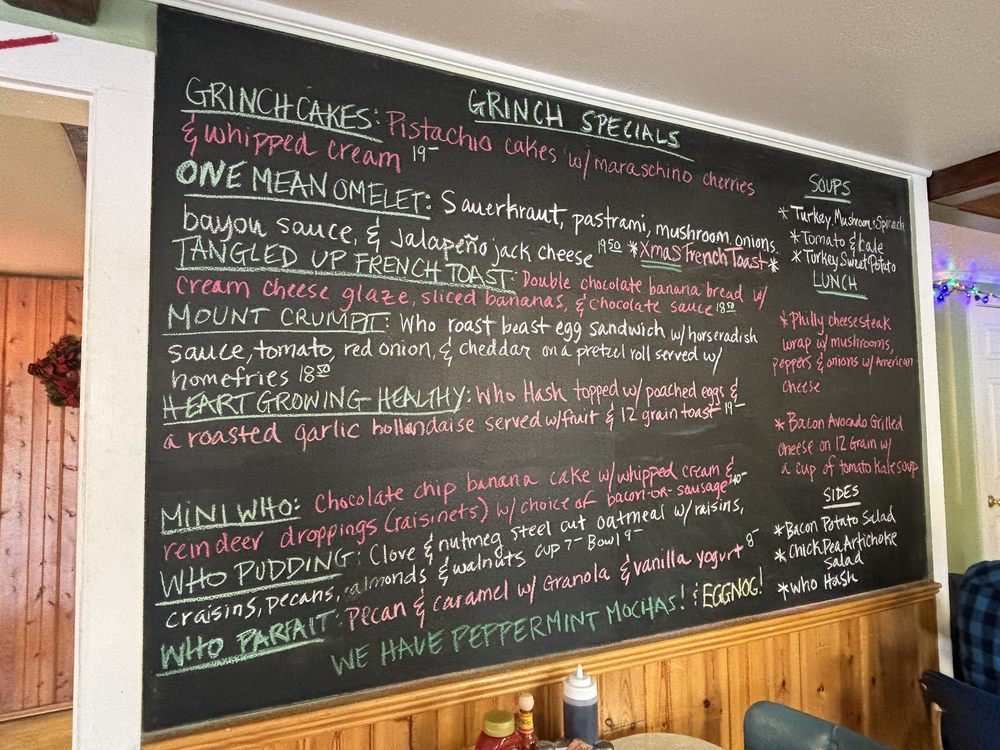 GRINCH SPECIALS
GRINCHCAKES: Pistachio cakes w/ maraschino cherries
& whipped cream 19-
ONE MEAN OMELET: Sauerkraut, pastrami, mushroom, onions
bayou sauce, & Jalapeño jack cheese 19 50 *Xmas French Toast*
TANGLED UP FRENCH TOAST: Double chocolate banana bread w/
cream cheese glaze, sliced bananas, & chocolate sauce 18 50
MOUNT CRUMPIT: Who roast beast egg sandwich w/ horseradish
sauce, tomato, red onion, & cheddar on a pretzel roll served w/
homefries 18 50
HEART GROWING HEALTHY: Who Hash topped w/ poached eggs &
a roasted garlic hollandaise served w/ fruit & 12 grain toast 19-
MINI WHO: Chocolate chip banana cake w/ whipped cream &
reindeer droppings (raisinets) w/ choice of bacon -or- sausage
WHO PUDDING: Clove & nutmeg steel cut oatmeal w/ raisins,
craisins, pecans, almonds & walnuts CUP 7- Bowl 9-
WHO PARFAIT: Pecan & caramel w/ Granola & vanilla yogurt 8-
WE HAVE PEPPERMINT MOCHAS! & EGGNOG!
SOUPS
* Turkey Mushroom & Spinach
* Tomato & kale
* Turkey Sweet Potato
LUNCH
* Philly cheesesteak
wrap w/ mushrooms,
peppers & onions w/ American
cheese
* Bacon Avocado Grilled
cheese on 12 Grain w/
a cup of tomato kale soup
SIDES
* Bacon Potato Salad
* Chick Pea Artichoke
Salad
* Who Hash